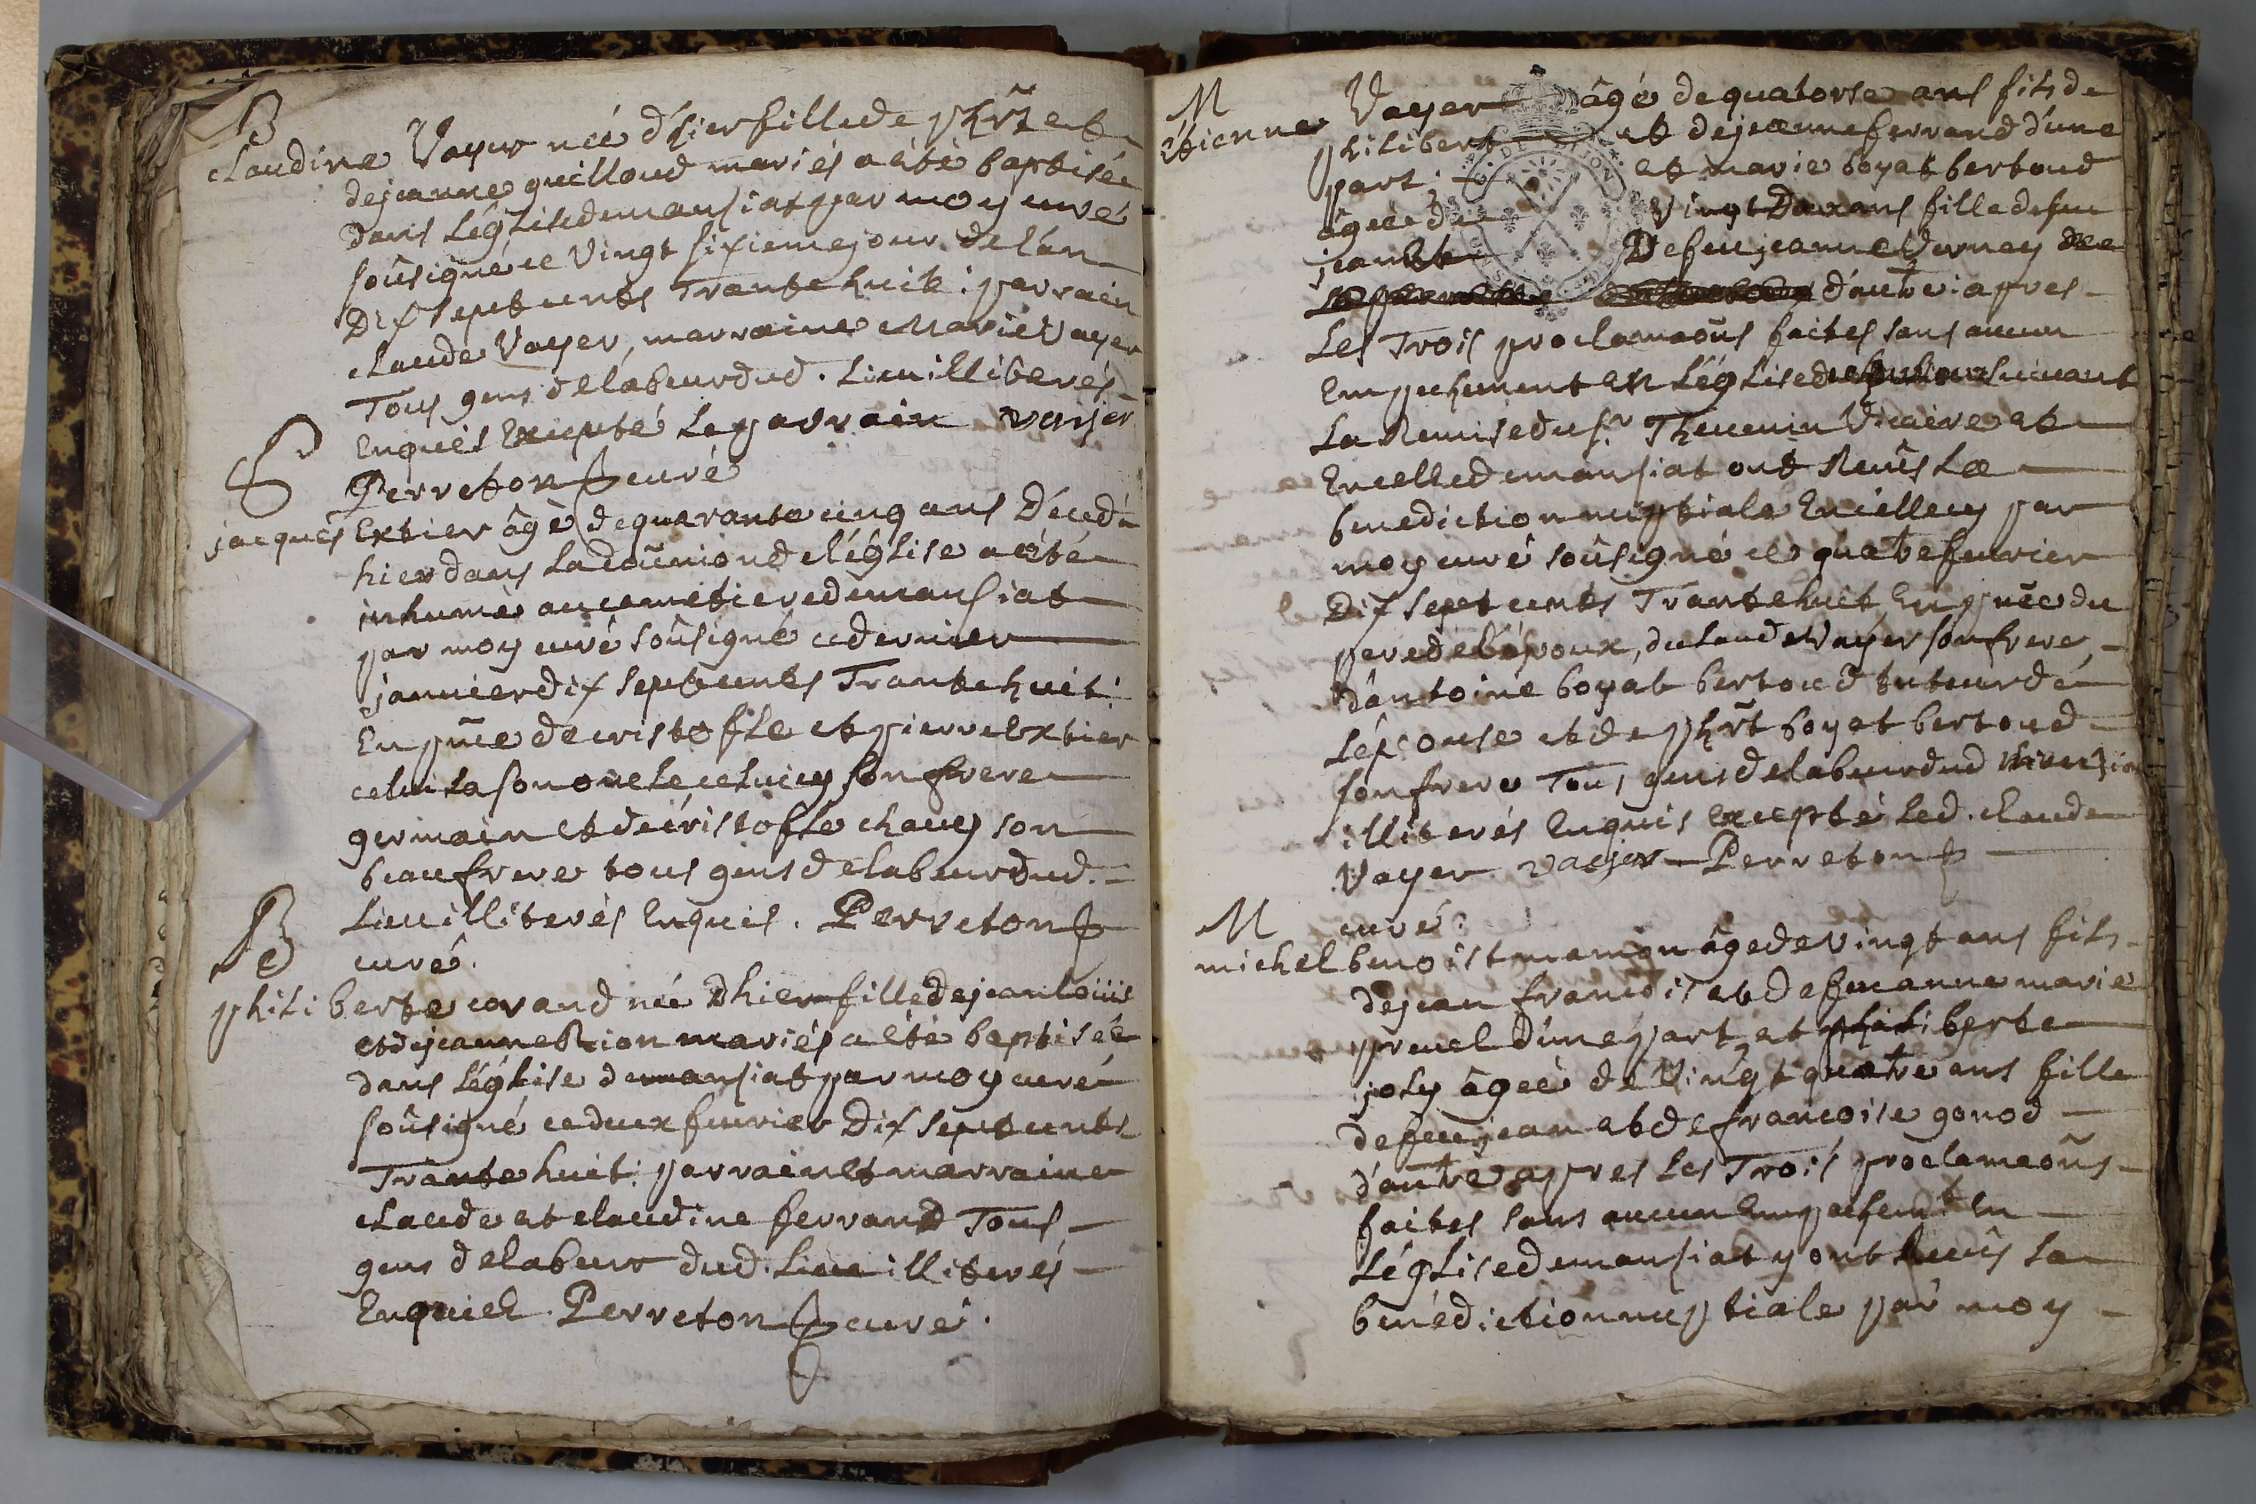 B
Claudine Vayer née d'hier fille de phīt et
de jeanne guilloud mariés a été baptisée
dans L'église de mansiat par moy curé
soûsigné ce Vingt sixieme jour de l'an
Dix sept cents Trante huit : parrain
claude Vayer, marraine Marie Vayer
Tous gens de labeur dud. Lieu illiterés
Enquis Excepté Le parrain vayer
Perreton curé
S
jacques Extier âgé de quarante cinq ans Décédé
hier dans La coūnion de l'église a été
inhumé au cemetiere de mansiat
par moy curé soûsigné ce dernier
janvier dix sept cents Trante huit :
En pñce de cristofle et pierre Extier
celui La son oncle celui cy son frere
germain et de cristofle chaucy son
beaufrere tous gens de labeur dud.
Lieu illiterés Enquis . Perreton
curé.
B
philiberte corand née Dhier fille de jean loüis
et de jeanne Rion mariés a été baptisée
dans L'église de mansiat par moy curé
soûsigné ce deux fevrier Dix sept cents
Trante huit : parrain et marraine
claude et claudine ferrand Tous
gens de labeur dud. Lieu illiterés
Enquis . Perreton curé .
M
étienne Vayer âgé de quatorse ans fils de
philibert et de jeanne ferrand d'une
part ; et marie boyat bertoud
âgée de Vingt Deux ans fille de feu
jean et De feu jeanne Vernay
d'autre ; apres
Les Trois proclamaoñs faites sans aucun
Empechement En L'église de suivant
La Remise du sr. Thevenin Vicaire et
En celle de mansiat ont Reçûs La
benediction nuptiale En icelle cy par
moy curé soûsigné ce quatre fevrier
Dix sept cents Trante huit En pñce du
pere de l'époux, de claude Vayer son frere,
d'antoine boyat bertoud tuteur de
L'épouse et de phr̃t boyat bertoud
son frere Tous gens de labeur dud
illiterés Enquis excepté Led. claude
Vayer vayer Perreton
curé.
M
michel benoist mamon âgé de vingt ans fils
de jean françois et de feu anne marie
pruel d'une part, et philiberte
joly âgée de Vingt quatre ans fille
de feu jean et de francoise gonod
d'autre apres Les Trois proclamaoñs
faites sans aucun Empechemt En
L'église de mansiat y ont Reçûs La
bénédiction nuptiale par moy